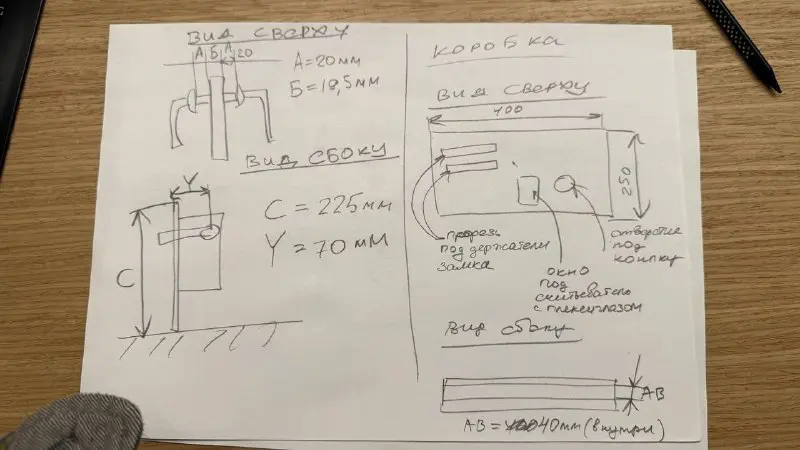 ВИД СВЕРХУ
А Б А 20
А=20мм
Б=18,5мм
ВИД СБОКУ
Y
C = 225мм
Y = 70мм
C
КОРОБКА
ВИД СВЕРХУ
400
250
прорезь
под держатели
замка
окно
под
считыватель
с плексигласом
отверстие
под
кнопку
Вид сбоку
АВ
АВ = 40мм (внутри)